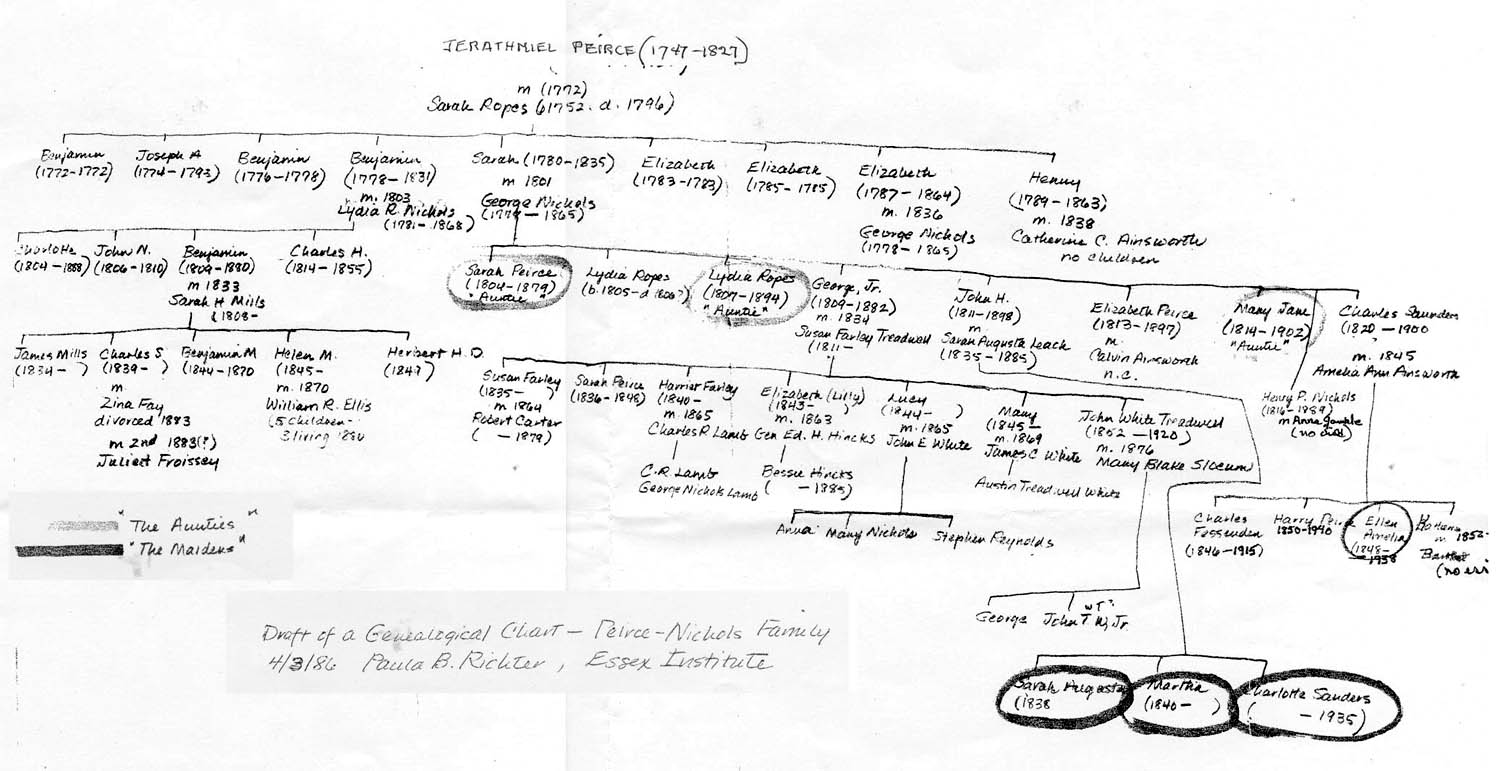 JERATHMIEL PEIRCE (1747-1827)
m (1772)
Sarah Ropes (b1752. d. 1796)
Benjamin
(1772-1772)
Joseph A
(1774-1793)
Benjamin
(1776-1778)
Benjamin
(1778-1831)
m. 1803
Lydia R. Nichols
(1781-1868)
Sarah (1780-1835)
m 1801
George Nichols
(1778-1865)
Elizabeth
(1783-1783)
Elizabeth
(1785-1785)
Elizabeth
(1787-1864)
m. 1836
George Nichols
(1778-1865)
Henry
(1789-1863)
m. 1838
Catherine C. Ainsworth
no children
Charlotte
(1804-1888)
John N.
(1806-1810)
Benjamin
(1809-1880)
m 1833
Sarah H Mills
(1808-
Charles H.
(1814-1855)
Sarah Peirce
(1804-1879)
"Auntie"
Lydia Ropes
(b.1805-d 1806?)
Lydia Ropes
(1807-1894)
"Auntie"
George, Jr.
(1809-1882)
m. 1834
Susan Farley Treadwell
(1811-
John H.
(1811-1898)
m
Sarah Augusta Leach
(1835-1885)
Elizabeth Peirce
(1813-1897)
m.
Calvin Ainsworth
n.c.
Mary Jane
(1814-1902)
"Auntie"
Henry P. Nichols
(1816-1889)
m Anna
(no
Charles Saunders
(1820-1900
m. 1845
Amelia Ann Ainsworth
James Mills
(1834- )
Charles S.
(1839- )
m
Zina Fay
divorced 1883
m 2nd 1883(?)
Juliett Froissey
Benjamin M
(1844-1870
Helen M.
(1845-
m. 1870
William R. Ellis
(5 children-
3 living 1880
Herbert H. D.
(1849)
Susan Farley
(1835- )
m 1864
Robert Carter
( -1879)
Sarah Peirce
(1836-1848)
Harriet Farley
(1840-
m. 1865
Charles R Lamb
C. R Lamb
George Nichols Lamb
Elizabeth (Lilly)
(1843- )
m. 1863
Gen Ed. H. Hincks
Bessie Hincks
( -1885)
Lucy
(1844- )
m. 1865
John E White
Anna Mary Nichols Stephen Reynolds
Mary
(1845-
m. 1869
James C White
Austin Treadwell White
John White Treadwell
(1852-1920)
m. 1876
Mary Blake Slocum
Charles
Fessenden
(1846-1915)
Harry Peirce
1850-1940
Ellen
Amelia
(1848-
1938
m. 1852-
(no
"The Aunties"
"The Maidens"
George
WT?
John T. W. Jr.
Draft of a Genealogical Chart - Peirce-Nichols Family
4/3/86 Paula B. Richter, Essex Institute
Sarah Augusta
(1838
Martha
(1840- )
Charlotte Sanders
( -1935)